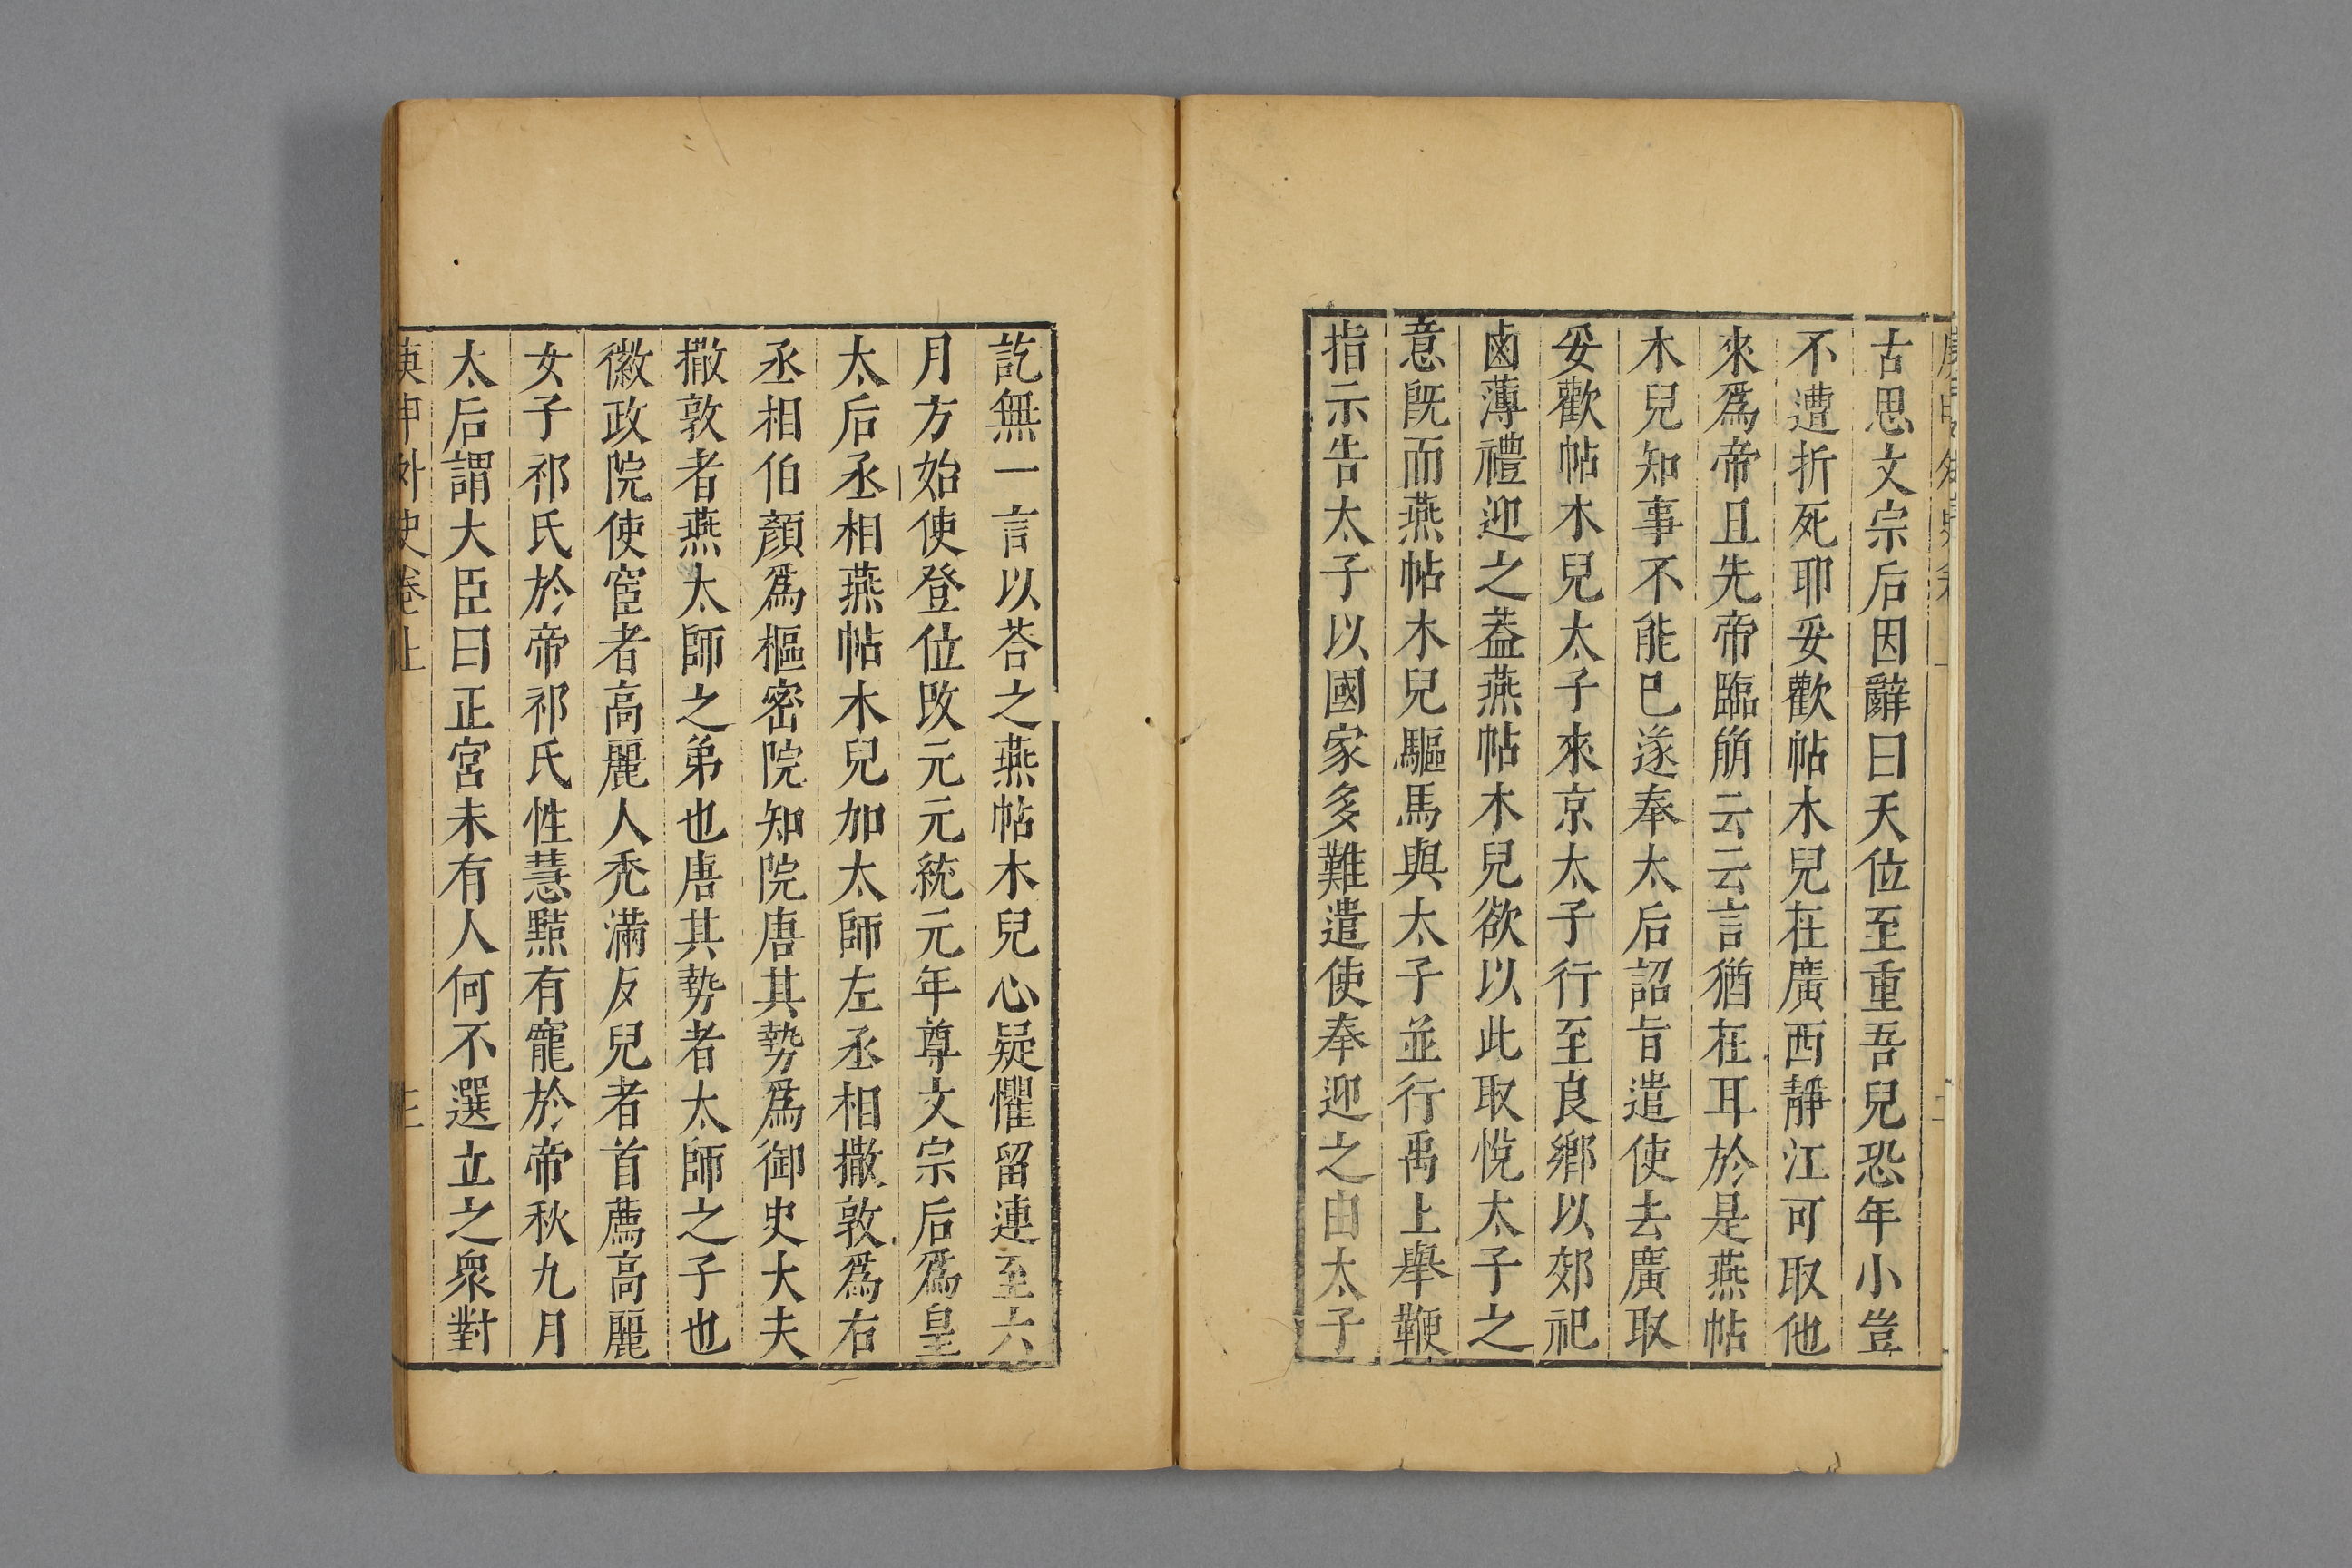 古思文宗后因辭曰天位至重吾兒恐年小豈
不遭折死耶妥歡帖木兒在廣西靜江可取他
來爲帝且先帝臨崩云云言猶在耳於是燕帖
木兒知事不能已遂奉太后詔旨遣使去廣取
妥歡帖木兒太子來京太子行至良鄉以郊祀
鹵薄禮迎之蓋燕帖木兒欲以此取悅太子之
意既而燕帖木兒驅馬與太子並行馬上舉鞭
指示告太子以國家多難遣使奉迎之由太子
訖無一言以荅之燕帖木兒心疑懼留連至六
月方始使登位改元元統元年尊文宗后爲皇
太后丞相燕帖木兒加太師左丞相撒敦爲右
丞相伯顏爲樞密院知院唐其勢爲御史大夫
撒敦者燕太師之弟也唐其勢者太師之子也
徽政院使宦者高麗人禿滿反兒者首薦高麗
女子祁氏於帝祁氏性慧黠有寵於帝秋九月
太后謂大臣曰正宮未有人何不選立之衆對
庚申外史卷上